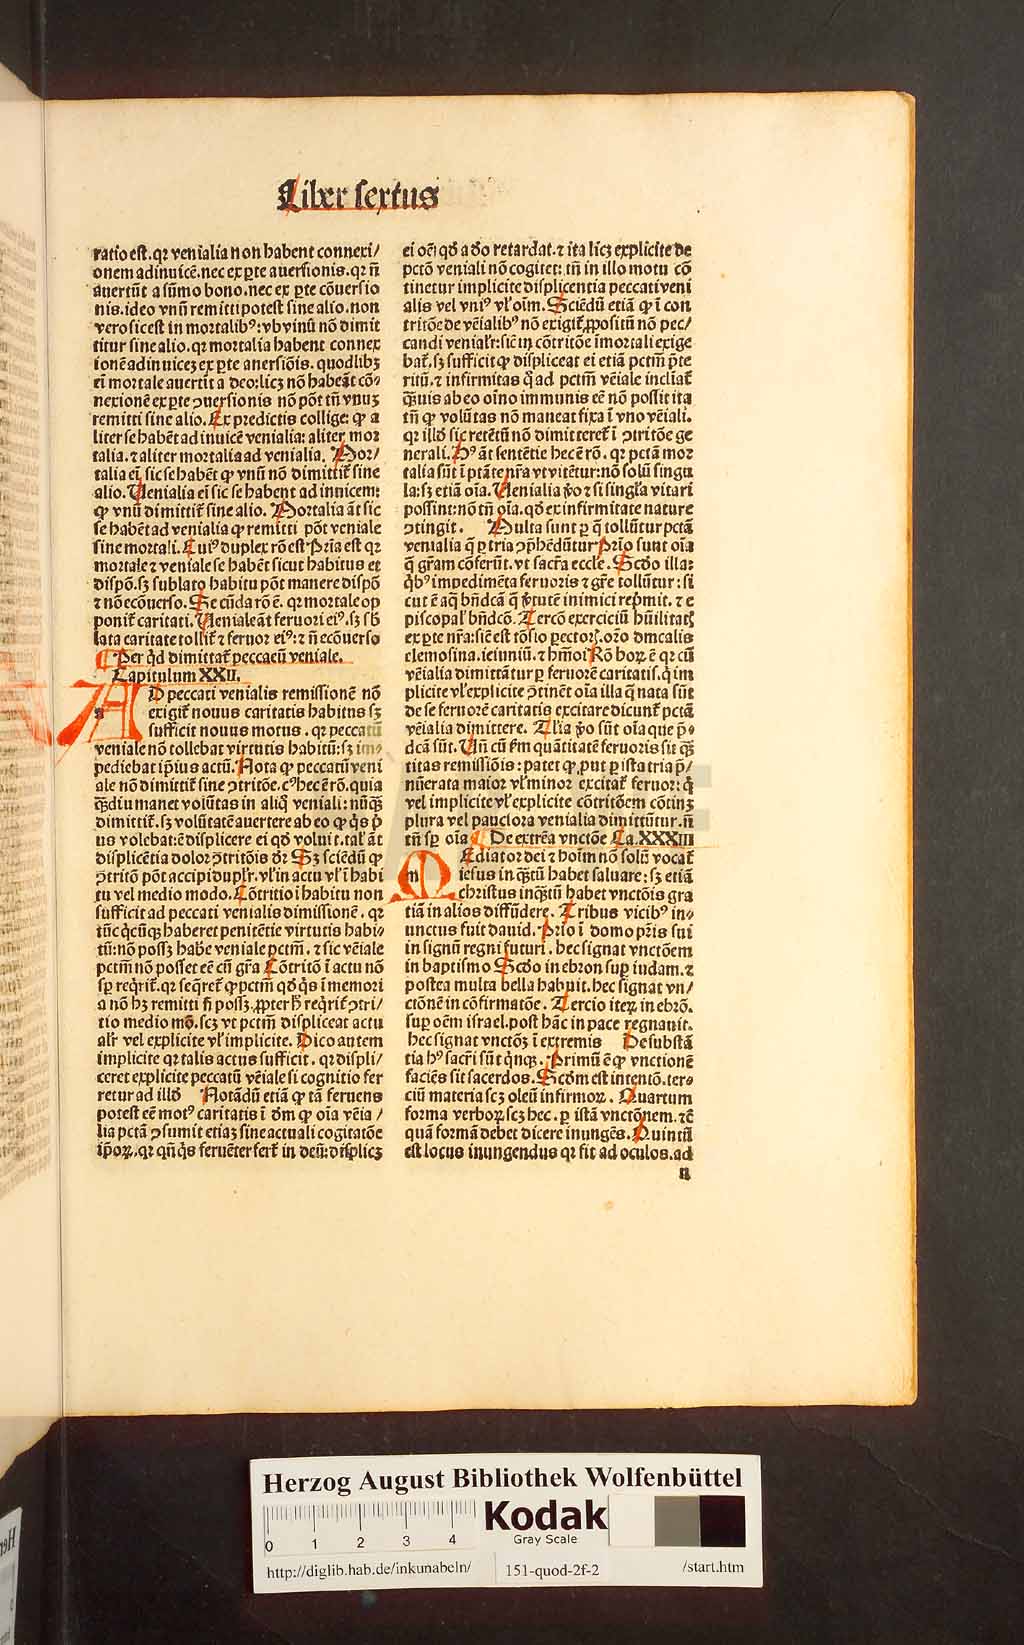 Liber sextus
ratio est. qꝛ venialia non habent connexi/
onem adinuicē. nec ex ꝑte auersionis. qꝛ n̄
auertūt a sūmo bono. nec ex ꝑte cōuersio
nis. ideo vnū remitti potest sine alio. non
vero sic est in mortalibꝰ: vbi vnū nō dimit
titur sine alio. qꝛ mortalia habent connex
ionē adinuicez ex ꝑte auersiōis. quodlibꝫ
ei̅ mortale auertit a deo: licꝫ nō habeāt cō-
nexionē ex ꝑte ꝯuersionis nō pōt tn̄ vnuꝫ
remitti sine alio. Ex predictis collige: ꝙ a
liter se habēt ad inuicē venialia: aliter mor
talia. ⁊ aliter mortalia ad venialia. Mor/
talia ei̅ sic se habēt ꝙ vnū nō dimittit᷑ sine
alio. Uenialia ei̅ sic se habent ad inuicem:
ꝙ vnū dimittit᷑ sine alio. Mortalia āt sic
se habēt ad venialia ꝙ remitti pōt veniale
sine mortali. Cuiꝰ duplex rō est Pria est qꝛ
mortale ⁊ veniale se habēt sicut habitus et
dispō. sꝫ sublato habitu pōt manere dispō
⁊ nō ecōuerso. Secūda rō ē. qꝛ mortale op
ponit᷑ caritati. Ueniale āt feruori eiꝰ. sꝫ sb̄
lata caritate tollit᷑ ⁊ feruor eiꝰ: ⁊ n̄ ecōuerso
Per qd̓ dimittat᷑ peccatū veniale.
Capitulum XXII.
AD peccati venialis remissionē nō
exigit᷑ nouus caritatis habitus sꝫ
sufficit nouus motus. qꝛ peccatū
veniale nō tollebat virtutis habitū: sꝫ im-
pediebat ip̄ius actū. Nota ꝙ peccatū veni
ale nō dimittit᷑ sine ꝯtritōe. cꝰ hec ē rō. quia
qꝫdiu manet volūtas in aliq̓ veniali: nūqꝫ
dimittit᷑. sꝫ volūtatē auertere ab eo ꝙ q̓s p̓
us volebat: ē displicere ei qd̓ voluit. tal̓ āt
displicētia dolor ꝯtritōis dr̄ Sꝫ sciēdū ꝙ
ꝯtritō pōt accipi dupl̓r. vl̓ in actu vl̓ ī habi
tu vel medio modo. Cōtritio ī habitu non
sufficit ad peccati venialis dimissionē. qꝛ
tūc q̓cūqꝫ haberet penitētie virtutis habi-
tū: nō possꝫ habe̓ veniale pctm̄. ⁊ sic vēiale
pctm̄ nō posset eē cū gr̄a Cōtritō ī actu nō
sꝑ req̓rit᷑. qꝛ seq̓ret᷑ ꝙ pctm̄ qd̓ q̓s ī memori
a nō hꝫ remitti n̄ possꝫ. ꝓpter h̓ req̓rit᷑ ꝯtri/
tio medio mō. scꝫ vt pctm̄ displiceat actu
al̓r vel explicite vl̓ implicite. Dico autem
implicite qꝛ talis actus sufficit. qꝛ displi/
ceret explicite peccatū vēiale si cognitio fer
retur ad illd̓ Notādū etiā ꝙ tā feruens
potest eē motꝰ caritatis ī dm̄ ꝙ oīa vēia/
lia pctā ꝯsumit etiaꝫ sine actuali cogitatōe
ip̄oꝝ. qꝛ qn̄ q̓s feruēter fert᷑ in deū: displicꝫ
ei om̄e qd̓ a do retardat. ⁊ ita licꝫ explicite de
pctō veniali nō cogitet: tn̄ in illo motu cō
tinetur implicite displicentia peccati veni
alis vel vniꝰ vl̓ oīm. Sciēdū etiā ꝙ ī con
tritōe de vēialibꝰ nō exigit᷑ ꝓpositū nō pec/
candi venial̓r: sic in cōtritōe ī mortali exige
bat᷑. sꝫ sufficit ꝙ displiceat ei etiā pctm̄ p̄te
ritū. ⁊ infirmitas q̓ ad pctm̄ vēiale inclīat᷑
qꝫuis ab eo oīno immunis eē nō possit ita
tn̄ ꝙ volūtas nō maneat fixa ī vno vēiali.
qꝛ illd̓ sic retētū nō dimitteret᷑ ī ꝯtritōe ge
nerali. Hꝰ āt sentētie hec ē rō. qꝛ pctā mor
talia sūt ī ptāte nr̄a vt vitētur: nō solū singu
la: sꝫ etiā oīa. Uenialia ꝟo ⁊ si singl̓a vitari
possint: nō tn̄ oīa. qd̓ ex infirmitate nature
ꝯtingit. Multa sunt ꝑ q̄ tollūtur pctā
venialia q̄ ꝑ tria ꝯp̄hēdūtur Prīo sunt oīa
q̄ gr̄am cōferūt. vt sacr̄a eccl̓e. Scd̓o illa:
q̓bꝰ impedimēta feruoris ⁊ gr̄e tollūtur: si
cut ē aq̄ bn̄dcā q̄ ꝟtutē inimici rep̄mit. ⁊ e
piscopal̓ bn̄dcō. Tercō exerciciū hūilitatꝭ
ex ꝑte nr̄a: sic ē st tōsio pectorꝭ. or̄o dnīcalis
elemosina. ieiuniū. ⁊ hm̄oi Rō hoꝝ ē qꝛ cū
vēialia dimittātur ꝑ feruorē caritatis. q̓ im
plicite vl̓ explicite ꝯtinēt oīa illa q̄ nata sūt
de se feruorē caritatis excitare dicunt᷑ pctā
vēialia dimittere. Talia ꝟo sūt oīa que p̄-
dcā sūt. Un̄ cū fm̄ quātitatē feruoris sit qꝫ
titas remissiōis: patet ꝙ, put ꝑ ista tria p̄/
nūerata maior vl̓ minor excitat᷑ feruor: q̓
vel implicite vl̓ explicite cōtritōem cōtinꝫ
plura vel pauciora venialia dimittūtur. n̄
tn̄ sꝑ oīa De extrēa vnctōe Ca. XXXIII
MEdiator dei ⁊ hoīm nō solū vocat᷑
iesus in qꝫtū habet saluare: sꝫ etiā
christus inqꝫtū habet vnctōis gra
tiā in alios diffūdere. Tribus vicibꝰ in-
unctus fuit dauid. Prīo ī domo pr̄is sui
in signū regni futuri. hec signat vnctōem
in baptismo Scd̓o in ebron suꝑ iudam. ⁊
postea multa bella habuit. hec signat vn/
ctōnē in cōfirmatōe. Tercio iteꝝ in ebrō.
suꝑ oēm israel. post hāc in pace regnauit.
hec signat vnctōꝫ ī extremis De substā
tia hꝰ sacr̄i sūt q̓nqꝫ. Primū ē ꝙ vnctionē
faciēs sit sacerdos. Scd̓m est intentō. ter-
ciū materia scꝫ oleū infirmoꝝ. Quartum
forma verboꝝ scꝫ hec. ꝑ istā vnctōnem. ⁊c̄
quā formā debet dicere inungēs. Quintū
est locus inungendus qꝛ fit ad oculos. ad
n
Herzog August Bibliothek Wolfenbüttel
0 1 2 3 4
Kodak
Gray Scale
http://diglib.hab.de/inkunabeln/ 151-quod-2f-2 /start.htm